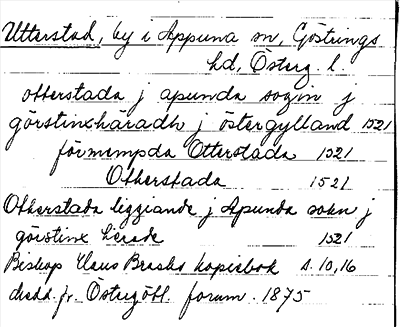 Utterstad, by i Appuna sn, Göstrings
hd, Österg. l.
otterstada j apunda sogin j
görstinxhäradh j östergylland 1521
förnempda Otterstada 1521
Otherstada 1521
Otherstada liggiande j Apunda sokn j
görstinx herade 1521
Biskop Hans Brasks kopiebok s. 10, 16
dadd. fr. Östergötl. fornm. 1875